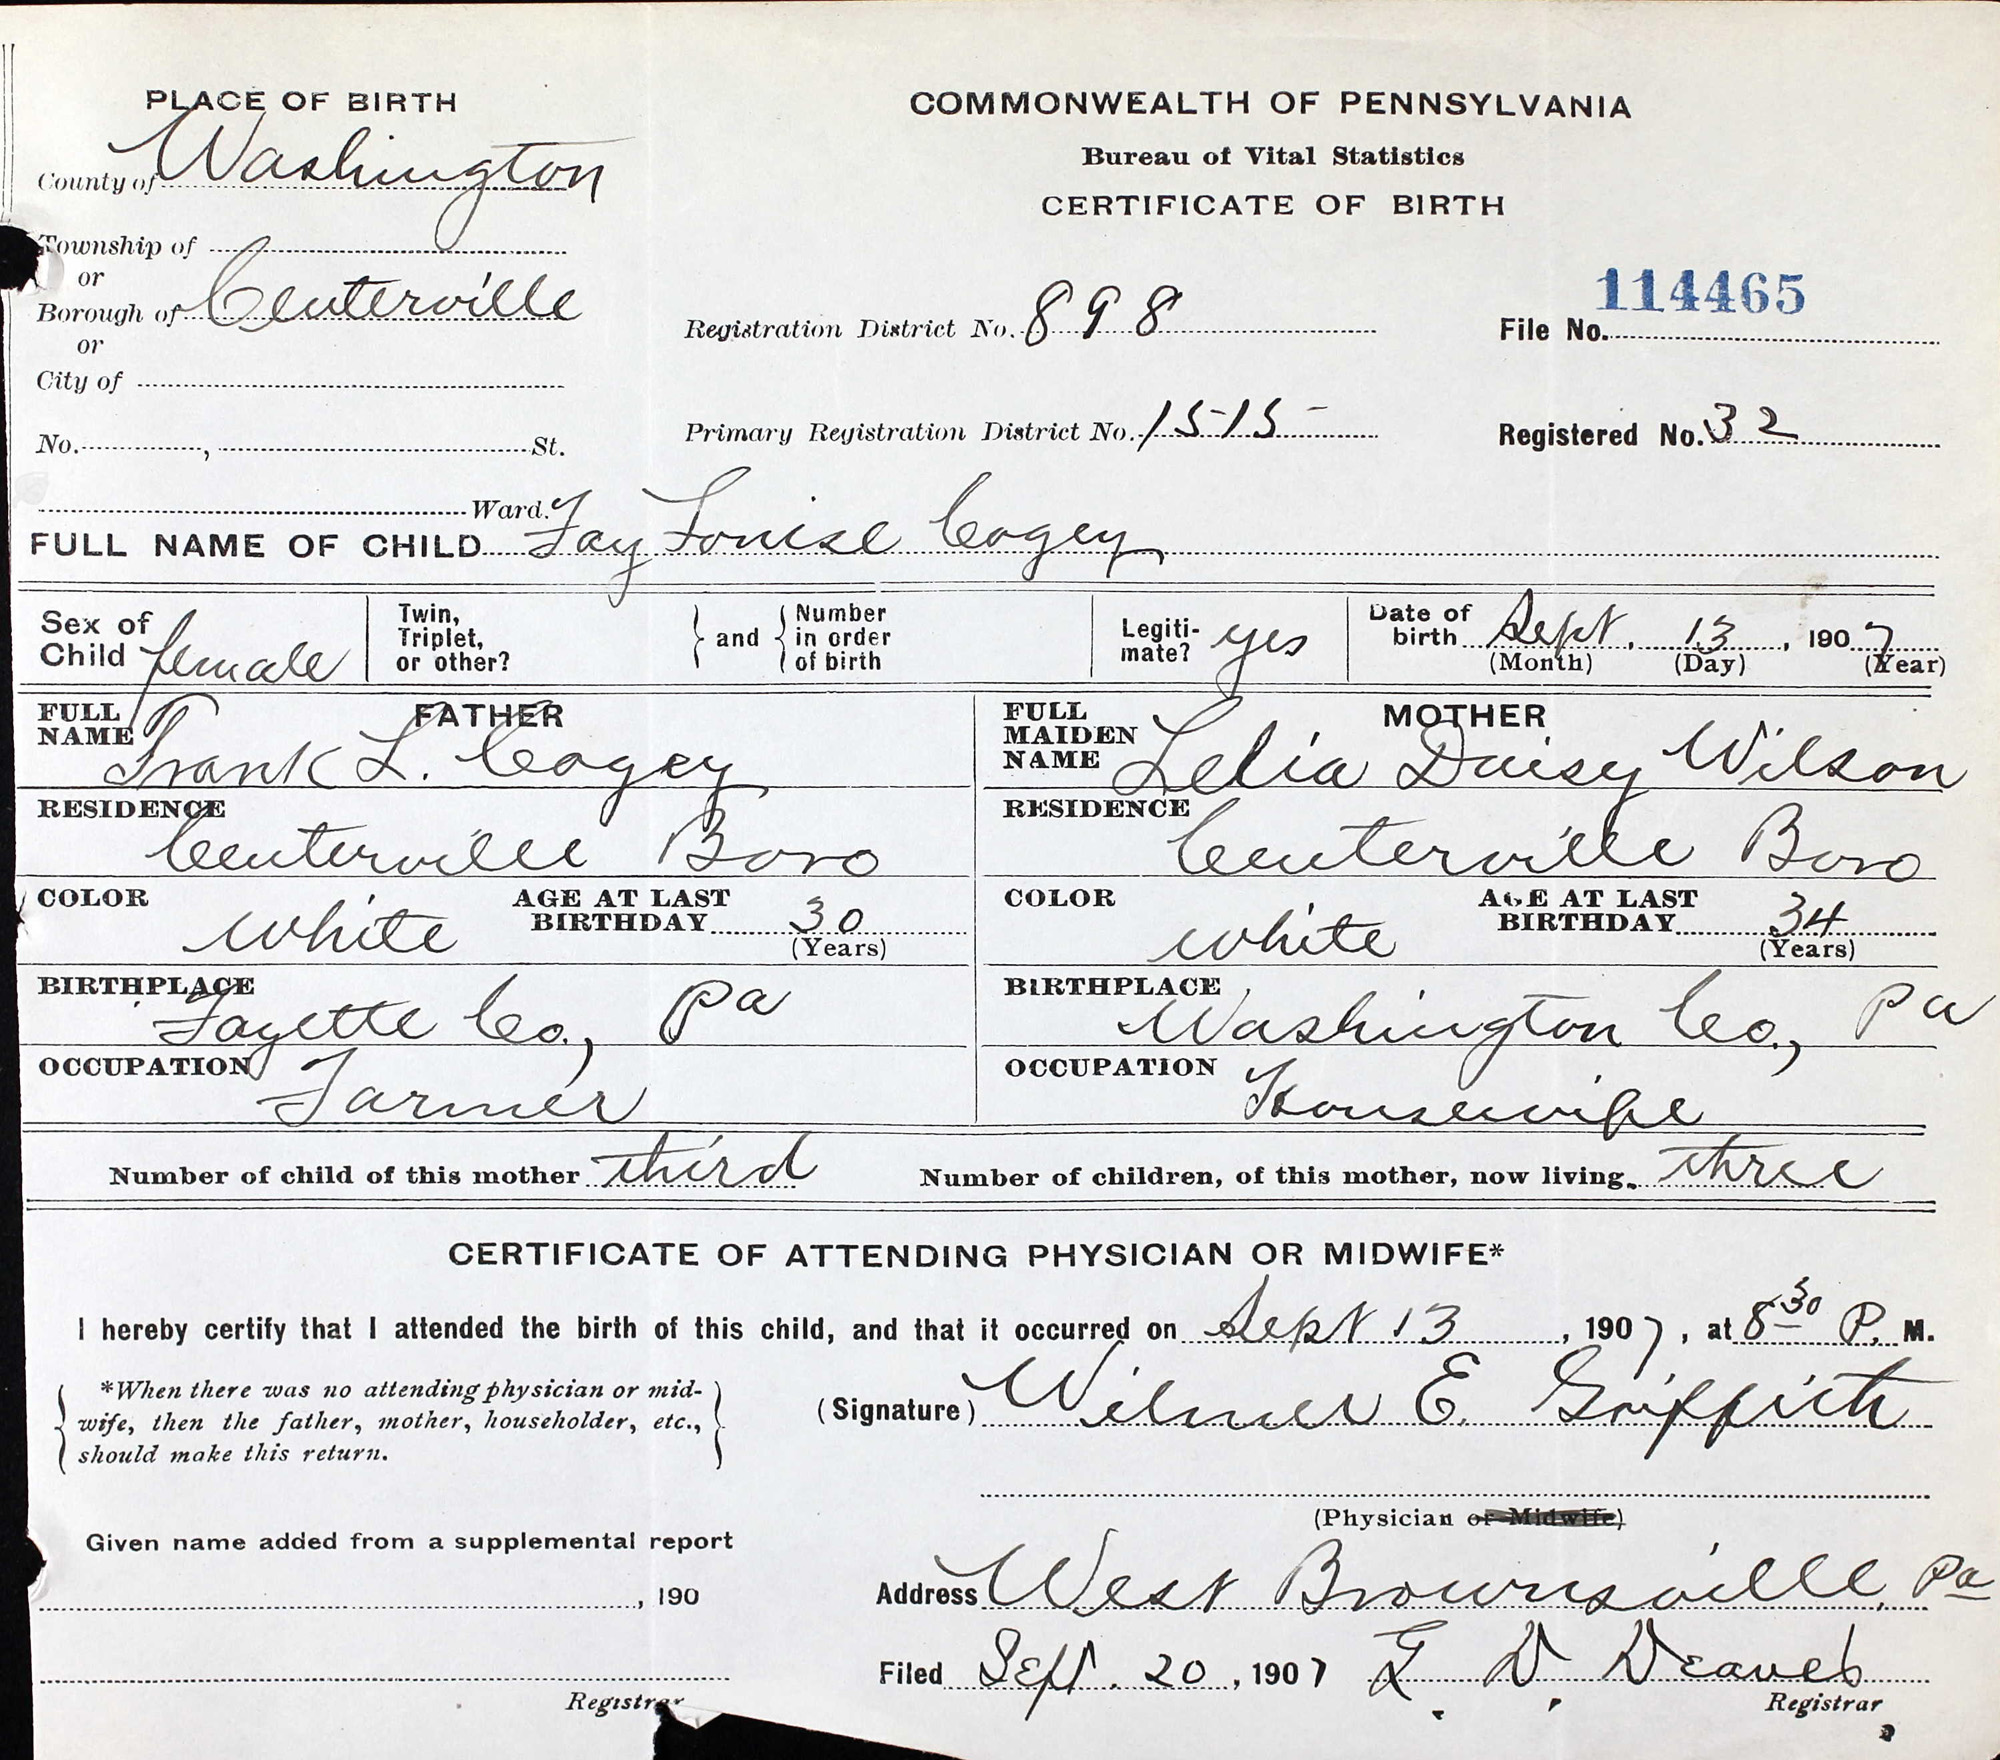 PLACE OF BIRTH
County of Washington
Township of
or
Borough of Centerville
or
City of
No. , St.
Ward.
COMMONWEALTH OF PENNSYLVANIA
Bureau of Vital Statistics
CERTIFICATE OF BIRTH
Registration District No. 898
File No. 114465
Primary Registration District No. 1515
Registered No. 32
FULL NAME OF CHILD Fay Louise Cogey
Sex of Child female
Twin, Triplet, or other?
and
Number in order of birth
Legitimate? yes
Date of birth Sept. 13, 1907
(Month) (Day) (Year)
FATHER
FULL NAME Frank L. Cogey
RESIDENCE Centerville Boro
COLOR white
AGE AT LAST BIRTHDAY 30
(Years)
BIRTHPLACE Fayette Co., Pa
OCCUPATION Farmer
MOTHER
FULL MAIDEN NAME Lelia Daisy Wilson
RESIDENCE Centerville Boro
COLOR white
AGE AT LAST BIRTHDAY 34
(Years)
BIRTHPLACE Washington Co., Pa
OCCUPATION Housewife
Number of child of this mother third
Number of children, of this mother, now living, three
CERTIFICATE OF ATTENDING PHYSICIAN OR MIDWIFE*
I hereby certify that I attended the birth of this child, and that it occurred on Sept 13, 1907, at 8 30 P. M.
*When there was no attending physician or mid-
wife, then the father, mother, householder, etc.,
should make this return.
(Signature) Wilmer E. Griffith
(Physician or Midwife)
Given name added from a supplemental report
, 190
Registrar
Address West Brownsville, Pa
Filed Sept. 20, 1907 L. D. Deaves
Registrar